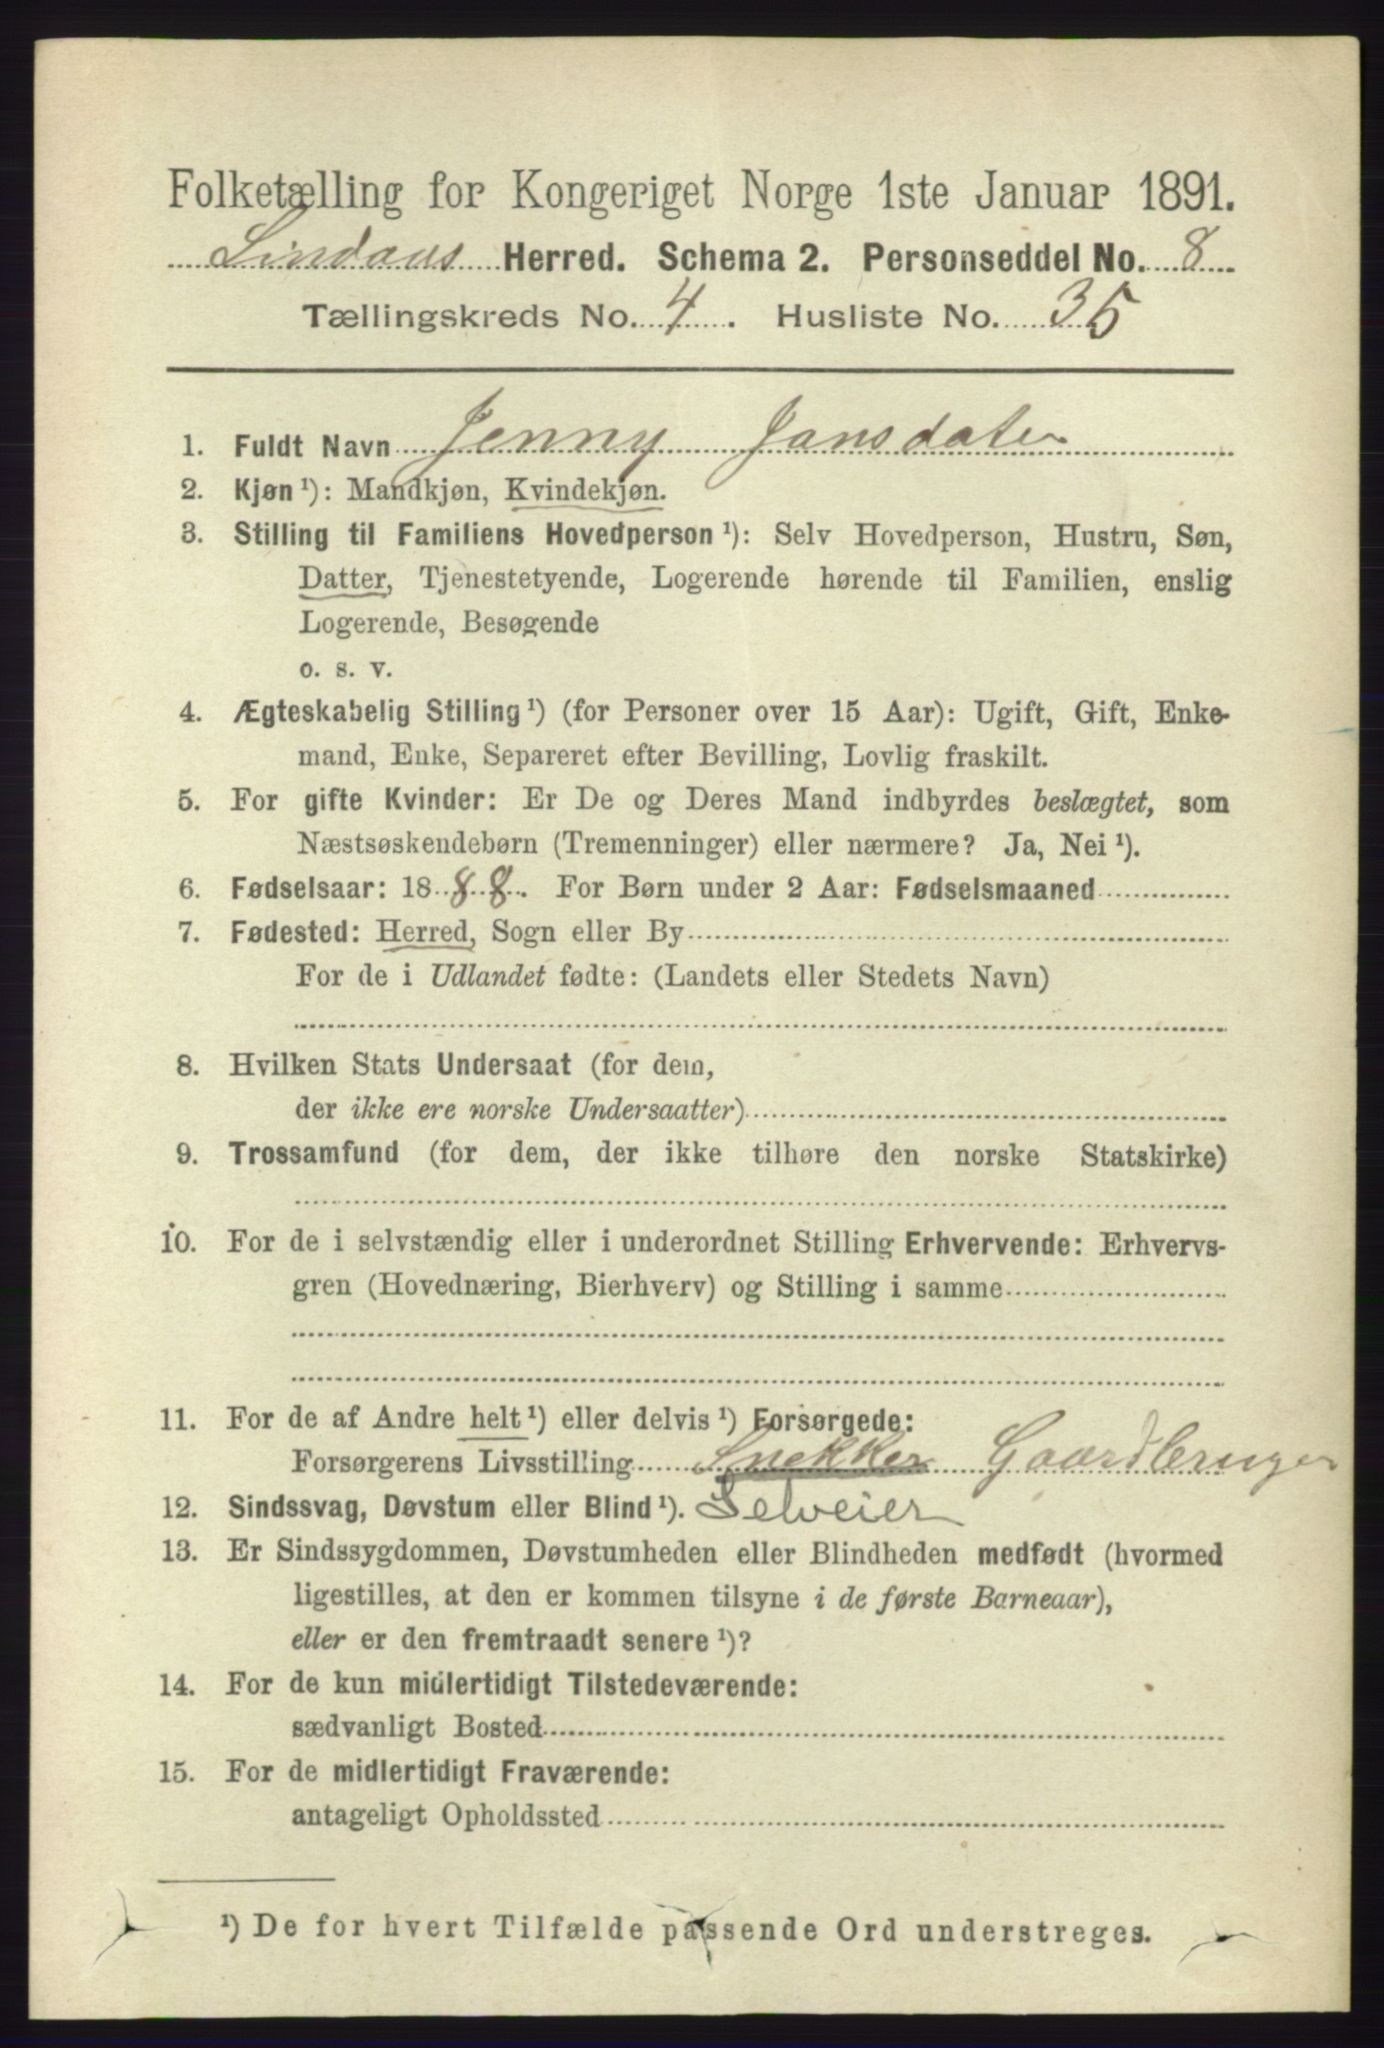 Folketælling for Kongeriget Norge 1ste Januar 1891.
Lindaas Herred. Schema 2. Personseddel No. 8
Tællingskreds No. 4. Husliste No. 35
1. Fuldt Navn Jenny Jansdater
2. Kjøn ¹): Mandkjøn, Kvindekjøn.
3. Stilling til Familiens Hovedperson ¹): Selv Hovedperson, Hustru, Søn,
Datter, Tjenestetyende, Logerende hørende til Familien, enslig
Logerende, Besøgende
o. s. v.
4. Ægteskabelig Stilling ¹) (for Personer over 15 Aar): Ugift, Gift, Enke-
mand, Enke, Separeret efter Bevilling, Lovlig fraskilt.
5. For gifte Kvinder: Er De og Deres Mand indbyrdes beslægtet, som
Næstsøskendebørn (Tremenninger) eller nærmere? Ja, Nei ¹).
6. Fødselsaar: 1888. For Børn under 2 Aar: Fødselsmaaned
7. Fødested: Herred, Sogn eller By
For de i Udlandet fødte: (Landets eller Stedets Navn)
8. Hvilken Stats Undersaat (for dem,
der ikke ere norske Undersaatter)
9. Trossamfund (for dem, der ikke tilhøre den norske Statskirke)
10. For de i selvstændig eller i underordnet Stilling Erhvervende: Erhvervs-
gren (Hovednæring, Bierhverv) og Stilling i samme
11. For de af Andre helt ¹) eller delvis ¹) Forsørgede:
Forsørgerens Livsstilling Snekker Gaardbruger
12. Sindssvag, Døvstum eller Blind ¹). Selveier
13. Er Sindssygdommen, Døvstumheden eller Blindheden medfødt (hvormed
ligestilles, at den er kommen tilsyne i de første Barneaar),
eller er den fremtraadt senere ¹)?
14. For de kun midlertidigt Tilstedeværende:
sædvanligt Bosted
15. For de midlertidigt Fraværende:
antageligt Opholdssted
¹) De for hvert Tilfælde passende Ord understreges.